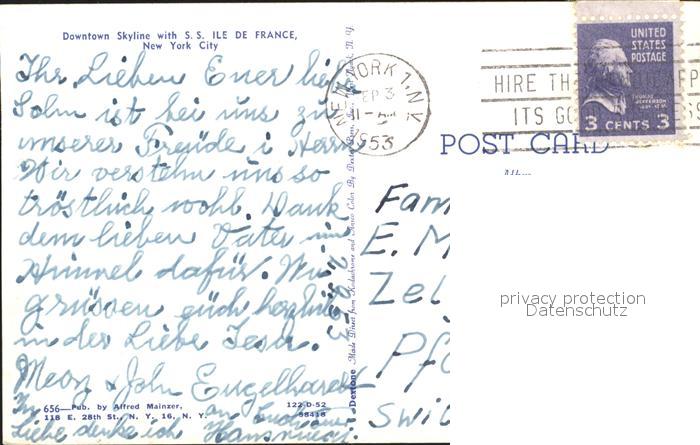 Downtown Skyline with S. S. ILE DE FRANCE,
New York City
Ihr Lieben Euer lieb
Sohn ist bei uns zu
unserer Freude i Herrn
Wir verstehn uns so
tröstlich wohl. Dank
dem lieben Vater im
Himmel dafür. Wir
grüssen euch herzlich
in der Liebe Jesu.
Mary & John Engelhardt
In
Liebe denke ich an
656—Pub. by Alfred Mainzer,
118 E. 28th St., N. Y. 16, N. Y.
122-D-52
38418
Dextone Made Direct from Kodachrome and Ansco Color By Dexter
NEW YORK 1, N.Y.
SEP 3
1953
HIRE TH
ITS GO
UNITED
STATES
POSTAGE
THOMAS
JEFFERSON
3 CENTS 3
POST CARD
Fam
E. M
Zel
Pfä
Swit
privacy protection
Datenschutz